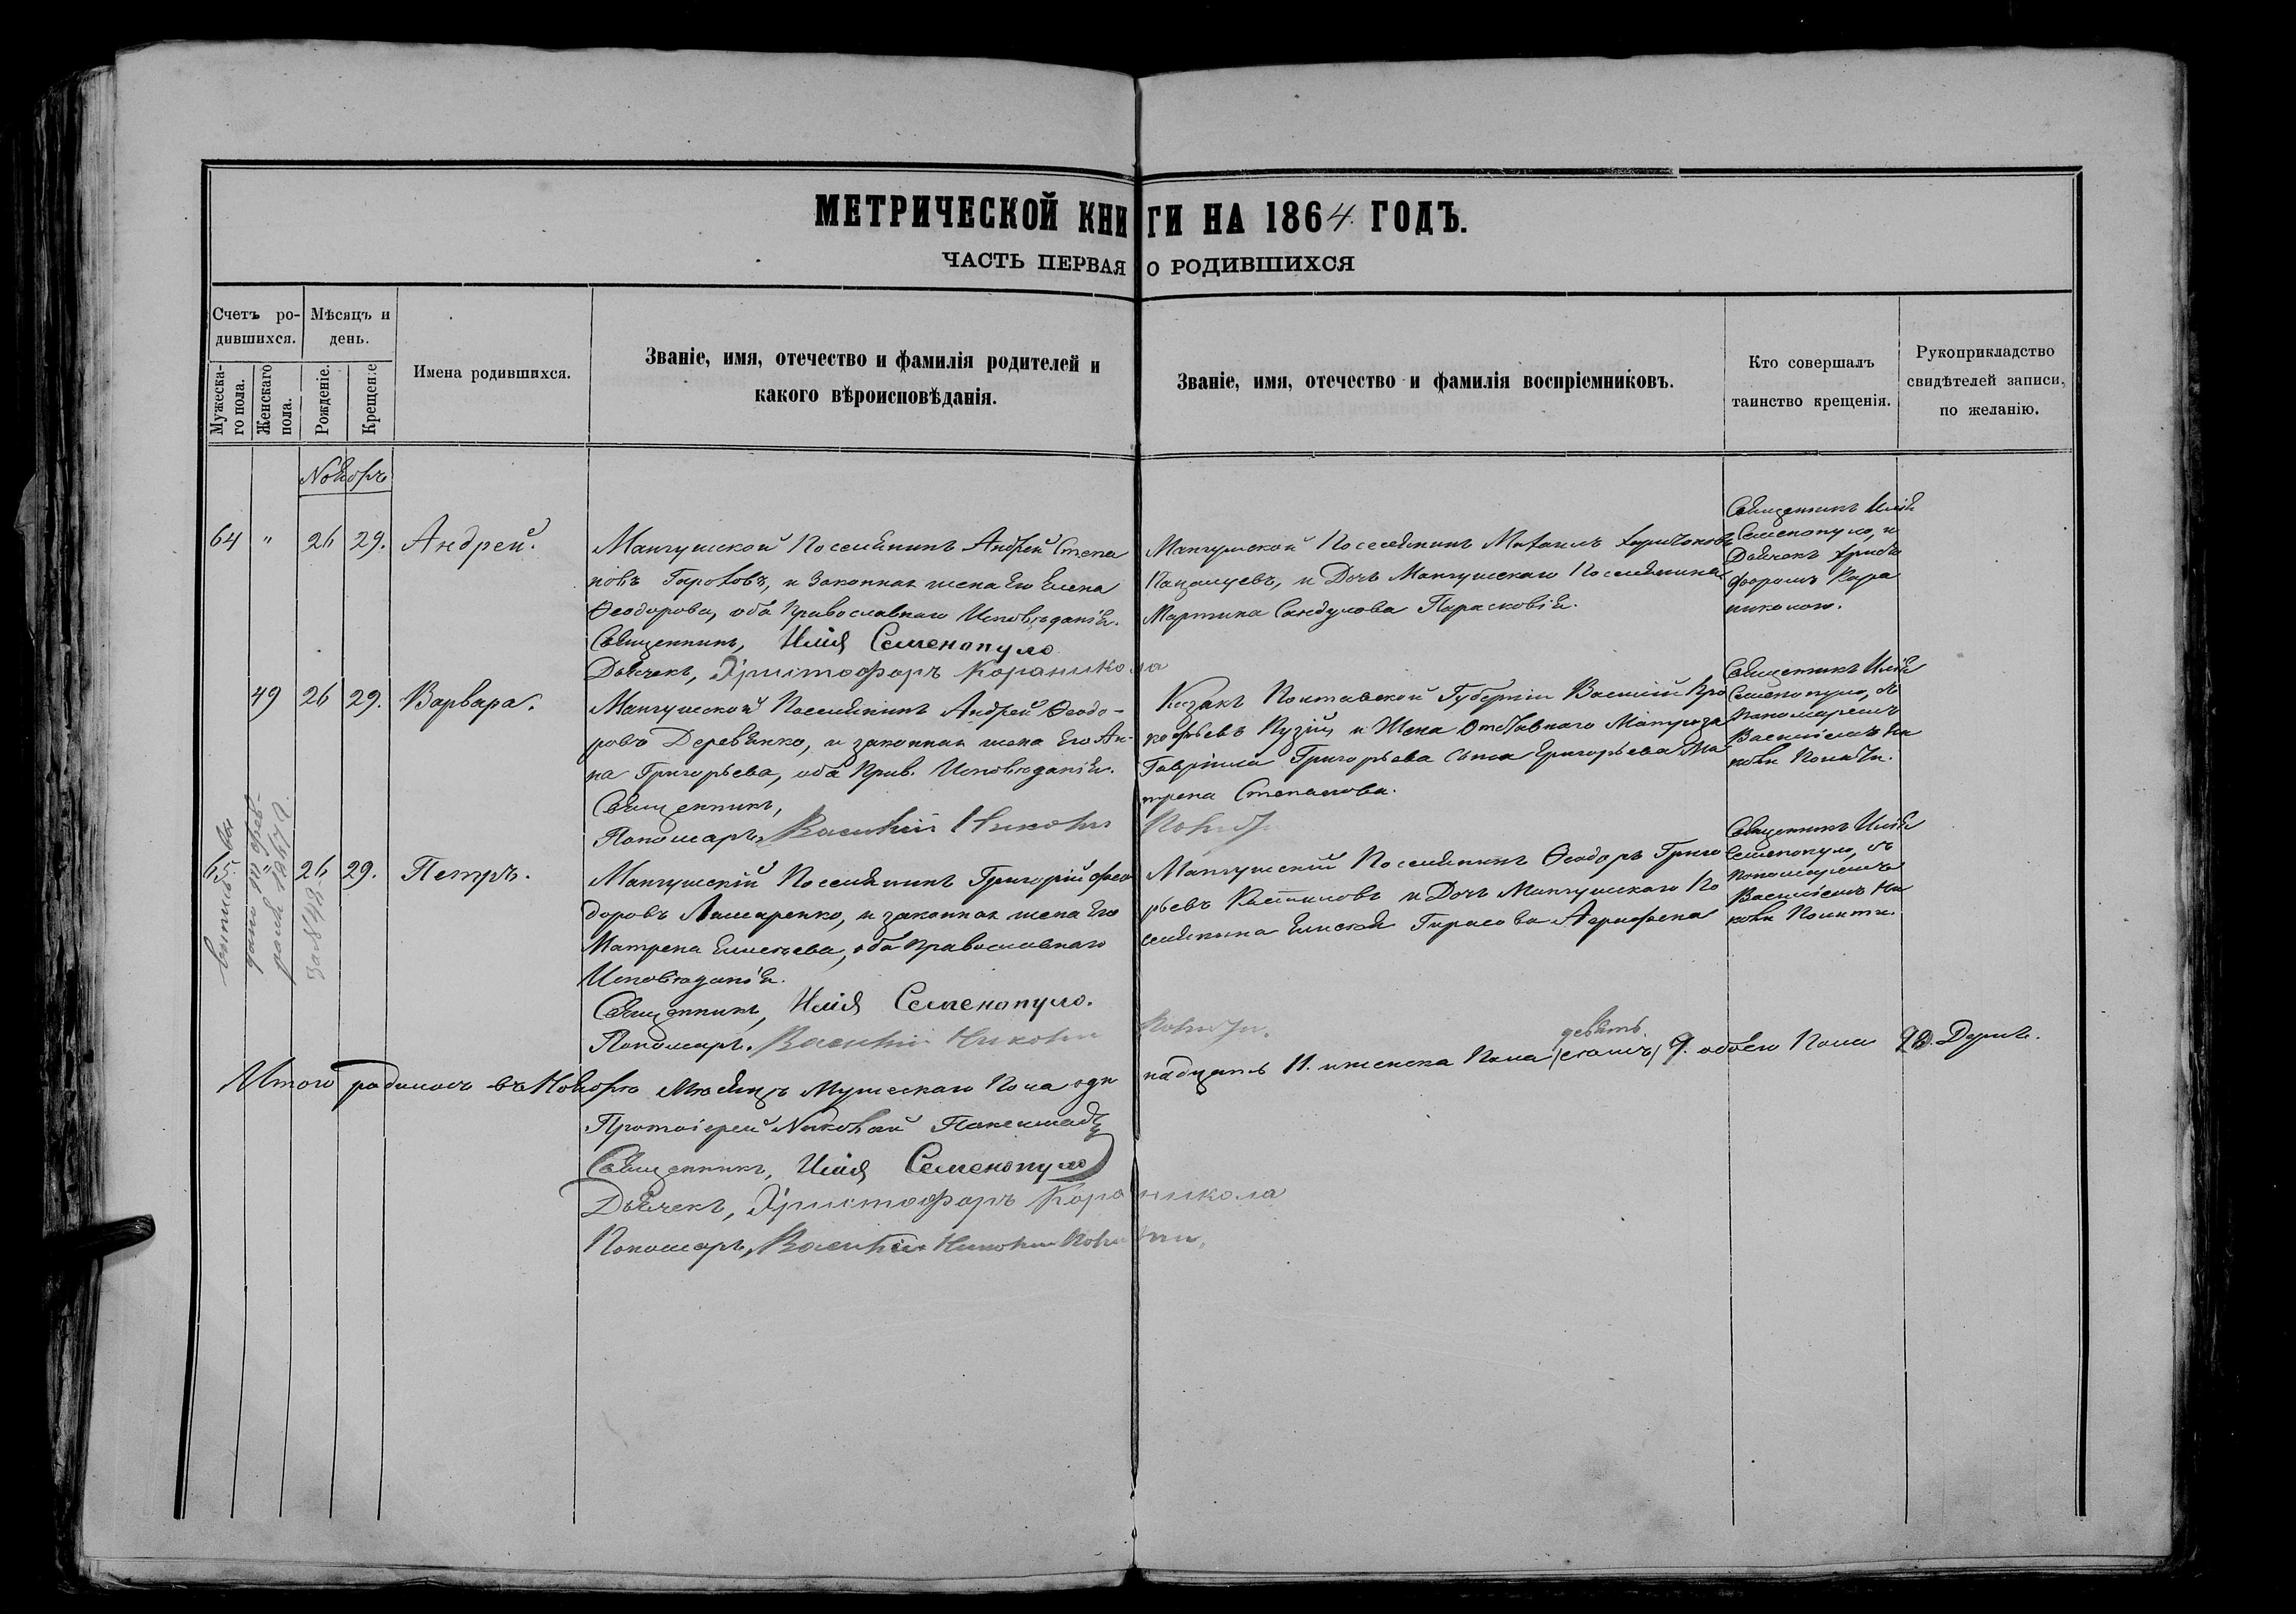 МЕТРИЧЕСКОЙ КНИГИ НА 1864 ГОДЪ.
ЧАСТЬ ПЕРВАЯ О РОДИВШИХСЯ
Счетъ ро-
дившихся.
Мѣсяцъ и
день.
Мужеска-
го пола.
Женскаго
пола.
Рожденіе.
Крещеніе
Имена родившихся.
Званіе, имя, отечество и фамилія родителей и
какого вѣроисповѣданія.
Званіе, имя, отечество и фамилія воспріемниковъ.
Кто совершалъ
таинство крещенія.
Рукоприкладство
свидѣтелей записи,
по желанію.
Ноябрь
64 " 26 29. Андрей.
Мангушской Поселянинъ Андрей Степа
новъ Гороховъ, и законная жена Его Елена
Ѳеодорова, оба Православнаго Исповѣданія.
Священникъ, Илія Семенопуло
Дьячекъ, Христофоръ Караникола
Мангушской Поселянинъ Михаилъ
и Дочь Мангушскаго Поселянина
Мартина Сандулова Парасковія.
Священникъ Илія
Семенопуло, и
Дьячекъ Христо
форомъ Кара
николою.
49 26 29. Варвара.
Мангушской Поселянинъ Андрей Ѳеодо-
ровъ Деревянко, и законная жена Его Ан-
на Григорьева, оба Прав. Исповѣданія.
Священникъ,
Пономарь, Василій
Козакъ Полтавской Губерніи Василій Про
кофьевъ и Жена Отставнаго Матроза
Гавріила Григорьева Сына Григорьева Ма
трена Степанова.
Священникъ Илія
Семенопуло, съ
Пономаремъ
Василіемъ Ни
65. 26 29. Петръ.
Мангушскій Поселянинъ Григорій Ѳео
доровъ Ламаренко, и законная жена Его
Матрена Елисѣева, оба Православнаго
Исповѣданія.
Священникъ, Илія Семенопуло.
Пономарь, Василій
Мангушскій Поселянинъ Ѳеодоръ Григо
рьевъ и Дочь Мангушскаго По
селянина Гарасова Агрифена
Священникъ Илія
Семенопуло, съ
Пономаремъ
Василіемъ Ни
Итого родилось въ Ноябрѣ Мѣсяцѣ Мужескаго Пола оди
надцать 11. и женска Пола девять 9. обоего Пола Душъ.
Протоіерей Николай
Священникъ, Илія Семенопуло
Дьячекъ, Христофоръ Караникола
Пономарь, Василій